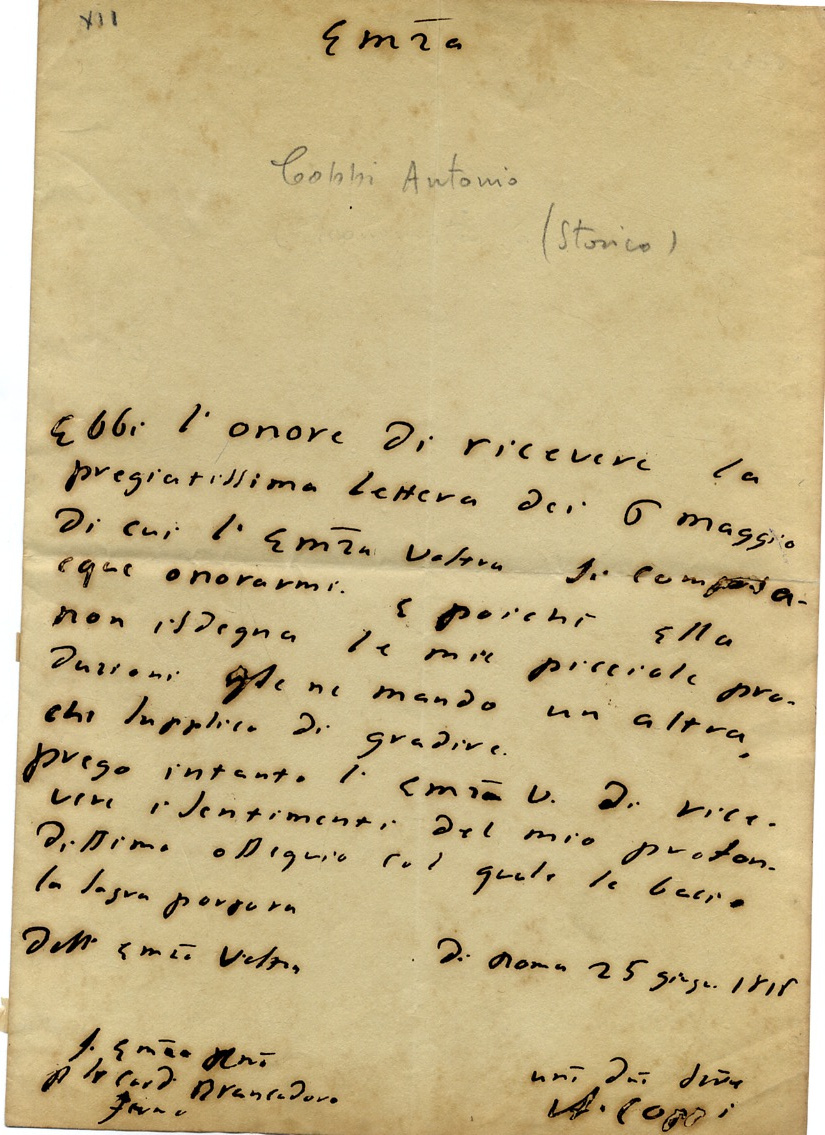 XII
Emza
Coppi Antonio
(Storico)
Ebbi l'onore di ricevere la
pregiatissima lettera dei 6 maggio
di cui l'Emza Vostra si compia-
cque onorarmi. E poichè Ella
non isdegna le mie picciole pro-
duzioni gle ne mando un altra,
che supplico di gradire.
prego intanto l'Emza V. di rice-
vere i sentimenti del mio profon-
dissimo ossequio col quale le bacio
la sagra porpora
Dell' Emza Vostra
di Roma 25 giug. 1818
S. Emza
Card Brancadoro
Fermo
A. Coppi